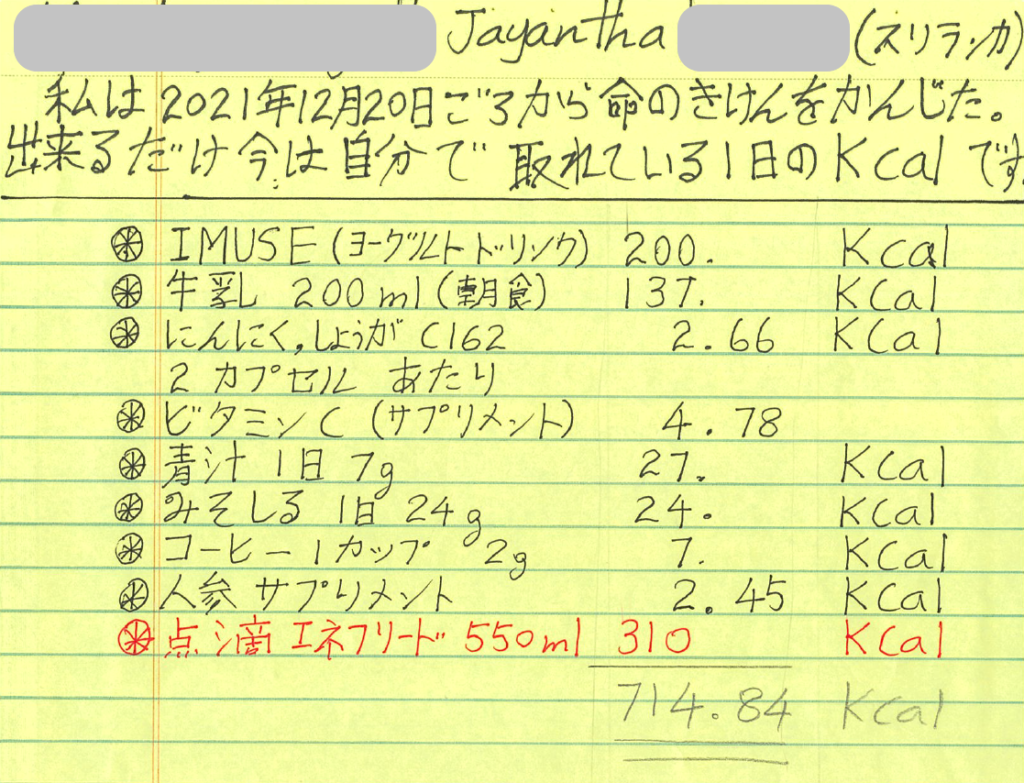 Jayantha (スリランカ)
私は2021年12月20日ごろから命のきけんをかんじた。
出来るだけ今は自分で取れている1日のKcalです
⊛ IMUSE (ヨーグルトドリンク) 200. Kcal
⊛ 牛乳 200ml (朝食) 137. Kcal
⊛ にんにく,しょうが C162 2.66 Kcal
2 カプセル あたり
⊛ ビタミンC (サプリメント) 4.78
⊛ 青汁 1日 7g 27. Kcal
⊛ みそしる 1日 24g 24. Kcal
⊛ コーヒー 1カップ 2g 7. Kcal
⊛ 人参 サプリメント 2.45 Kcal
⊛ 点滴 エネフリード 550ml 310 Kcal
714.84 Kcal